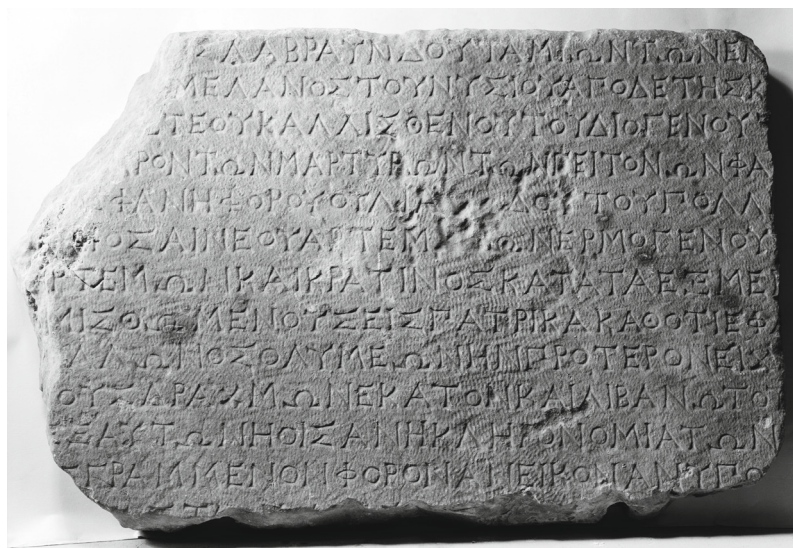 ΣΛΑΒΡΑΥΝΔΟΥΤΑΜΙΩΝΤΩΝΕΝ
ΜΕΛΑΝΟΣΤΟΥΝΥΣΙΟΥΑΠΟΔΕΤΗΣΚ
ΤΕΟΥΚΑΛΛΙΣΘΕΝΟΥΤΟΥΔΙΟΓΕΝΟΥ
ΡΟΝΤΩΝΜΑΡΤΥΡΩΝΤΩΝΓΕΙΤΟΝΩΝΦΑ
ΦΑΝΗΦΟΡΟΥΟΥΛΙΑΔΟΥΤΟΥΠΟΛΛ
ΟΣΑΙΝΕΟΥΑΡΤΕΜΩΝΕΡΜΟΓΕΝΟΥ
ΡΤΕΜΩΝΚΑΙΚΡΑΤΙΝΟΣΚΑΤΑΤΑΕΞΜΕ
ΜΙΣΘΩΜΕΝΟΥΣΕΙΣΠΑΤΡΙΚΑΚΑΘΟΤΙΕΦ
ΛΛΩΝΟΣΟΛΥΜΕΩΝΗΝΠΡΟΤΕΡΟΝΕΙΧ
ΟΥΣΔΡΑΧΜΩΝΕΚΑΤΟΝΚΑΙΛΙΒΑΝΩΤΟ
ΕΞΑΥΤΩΝΗΟΙΣΑΝΗΚΛΗΡΟΝΟΜΙΑΤΩΝ
ΓΡΑΜΜΕΝΟΝΦΟΡΟΝΑΝΕΙΚΟΝΑΝΥΠΟ